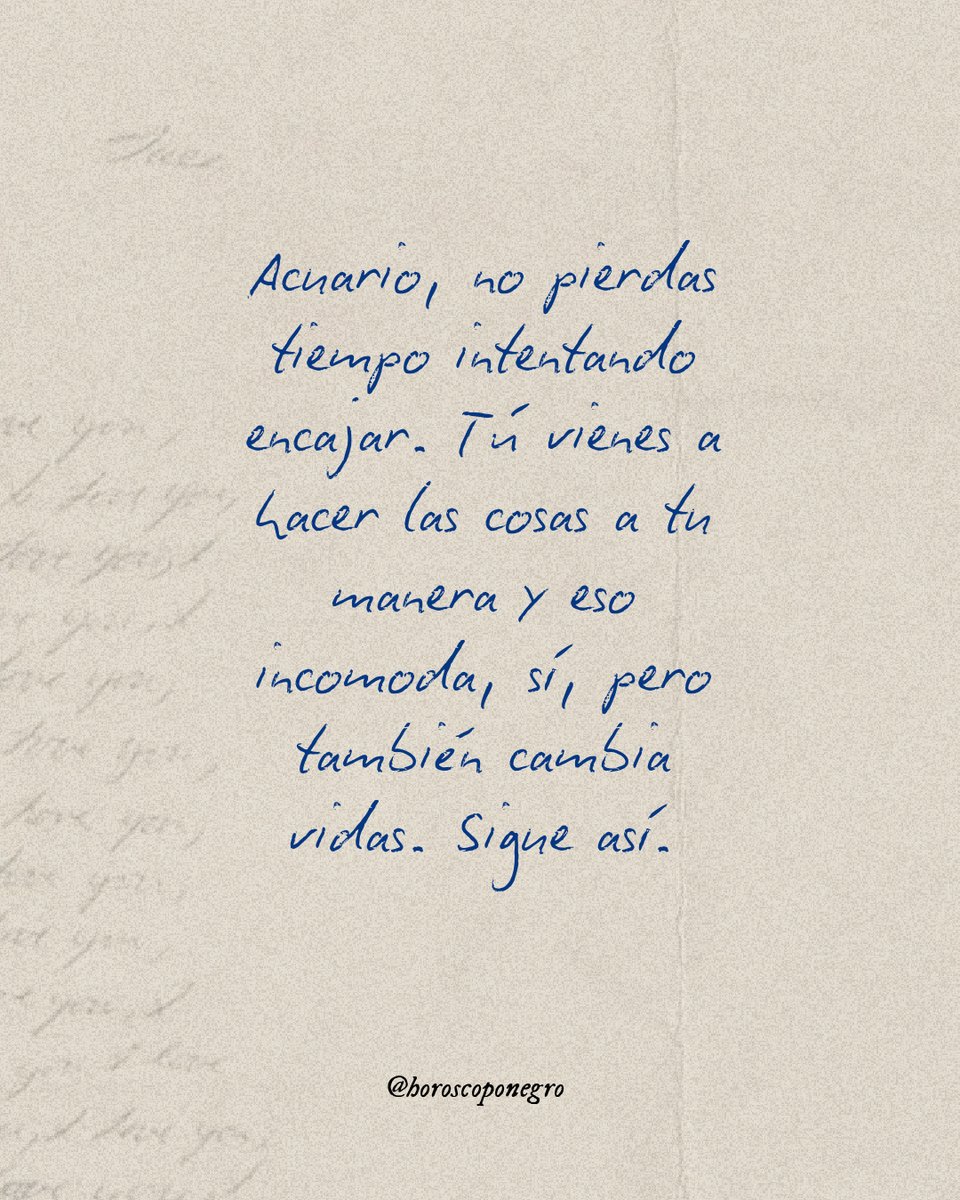 Acuario, no pierdas
tiempo intentando
encajar. Tú vienes a
hacer las cosas a tu
manera y eso
incomoda, sí, pero
también cambia
vidas. Sigue así.
@horoscoponegro